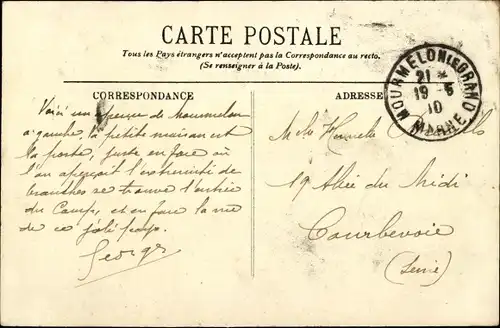 CARTE POSTALE
Tous les Pays étrangers n'acceptent pas la Correspondance au recto.
(Se renseigner à la Poste).
CORRESPONDANCE
ADRESSE
MOURMELON LE GRAND
21 *
19 - 5
10
MARNE
Voici un aperçu de Mourmelon
à gauche, la petite maison est
la poste, juste en face où
l'on aperçoit l'extrémité de
branches se trouve l'entrée
du Camp, et en face la rue
de ce joli pays.
George
19 Allée du Midi
Courbevoie
(Seine)